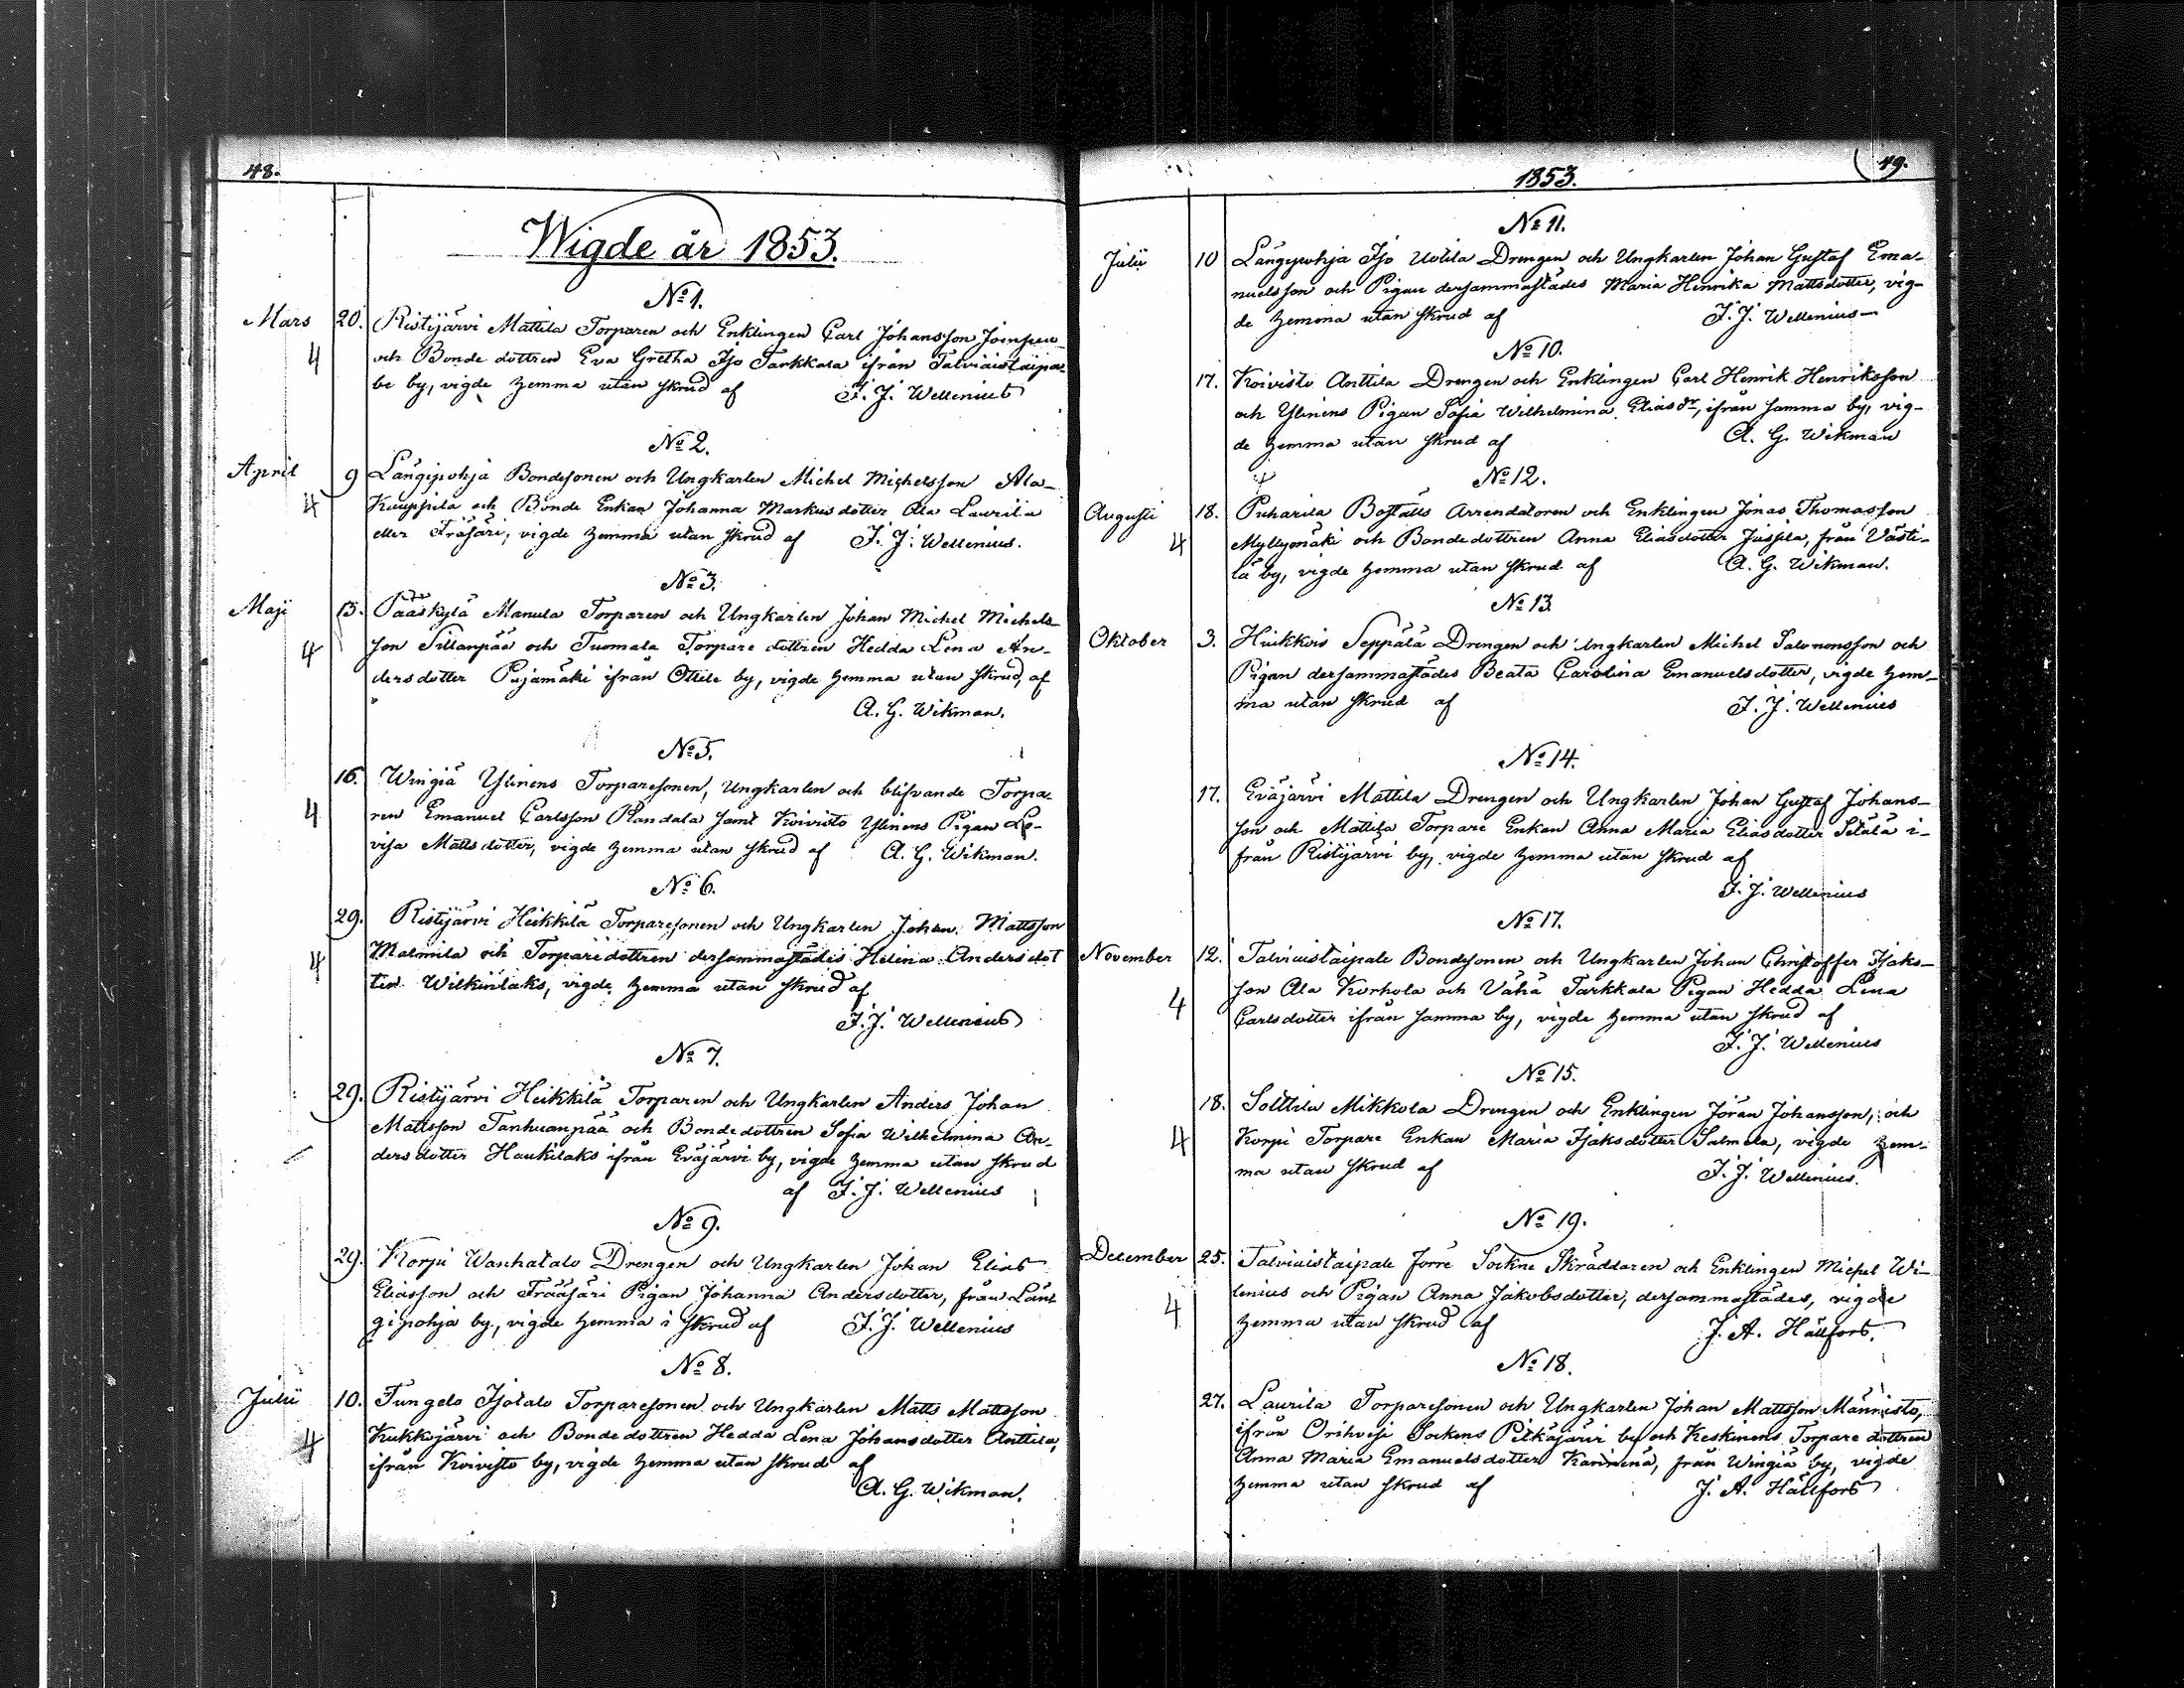 48.
Wigde år 1853.
No 1.
Mars 20. Ristijärvi Mattila Torparen och Enklingen Carl Johansson Joinpen
4 och Bonde dottren Eva Gretha Jso Tarkkala ifrån Talviaistaipa-
le by, vigde hemma utan skrud af F. J. Wellenius
No 2.
April 9 Längipohja Bondesonen och Ungkarlen Michel Michelsson Ala-
4 Kauppila och Bonde Enkan Johanna Markusdotter Ala Laurila
eller Fräsäri, vigde hemma utan skrud af F. J. Wellenius.
No 3.
Maji 15. Pääskylä Manula Torparen och Ungkarlen Johan Michel Michels-
4 son Sillanpää och Tuomala Torpare dottren Hedda Lena An-
dersdotter Pajamäki ifrån Ottile by, vigde hemma utan skrud, af
A. G. Wikman.
No 5.
16. Wingiä Ylinens Torparesonen, Ungkarlen och blifvande Torpa-
4 ren Emanuel Carlsson Randala samt Koivisto Ylinens Pigan Lo-
visa Mattsdotter, vigde hemma utan skrud af A. G. Wikman.
No 6.
29. Ristijärvi Heikkilä Torparesonen och Ungkarlen Johan Mattsson
4 Malmila och Torparedottren dersammastädes Helena Andersdot
ter Wilkinlaks, vigde hemma utan skrud af
F. J. Wellenius
No 7.
29. Ristijärvi Heikkilä Torparen och Ungkarlen Anders Johan
Mattsson Tanhuanpää och Bondedottren Sofia Wilhelmina An-
dersdotter Haukilaks ifrån Eväjärvi by, vigde hemma utan skrud
af F. J. Wellenius
No 9.
29. Korpi Wanhatalo Drengen och Ungkarlen Johan Elias
Eliasson och Frääsäri Pigan Johanna Andersdotter, från Län-
gipohja by, vigde hemma i skrud af F. J. Wellenius
No 8.
Julii 10. Fungelo Jsotalo Torparesonen och Ungkarlen Matts Mattsson
4 Kukkojärvi och Bondedottren Hedda Lena Johansdotter Anttila,
ifrån Koivisto by, vigde hemma utan skrud af
A. G. Wikman.
1853. 49.
No 11.
Julii 10 Längipohja Jso Uotila Drengen och Ungkarlen Johan Gustaf Ema-
nuelsson och Pigan dersammastädes Maria Henrika Mattsdotter, vig-
de hemma utan skrud af F. J. Wellenius
No 10.
17. Koivisto Anttila Drengen och Enklingen Carl Henrik Henriksson
och Ylinens Pigan Sofia Wilhelmina Eliasdr, ifrån samma by, vig-
de hemma utan skrud af A. G. Wikman
No 12.
Augusti 18. Puharila Boställs Arrendatoren och Enklingen Jonas Thomasson
4 Myllymäki och Bondedottren Anna Eliasdotter Jussila, från Västi-
lä by, vigde hemma utan skrud af A. G. Wikman.
No 13.
Oktober 3. Huikkois Seppälä Drengen och Ungkarlen Michel Salomonsson och
Pigan dersammastädes Beata Carolina Emanuelsdotter, vigde hem-
ma utan skrud af F. J. Wellenius
No 14.
17. Eväjärvi Mattila Drengen och Ungkarlen Johan Gustaf Johans-
son och Mattila Torpare Enkan Anna Maria Eliasdotter Setälä i-
från Ristijärvi by, vigde hemma utan skrud af
F. J. Wellenius
No 17.
November 12. Talviaistaipale Bondesonen och Ungkarlen Johan Christoffer Jsaks-
4 son Ala Korhola och Vähä Tarkkala Pigan Hedda Lena
Carlsdotter ifrån samma by, vigde hemma utan skrud af
F. J. Wellenius
No 15.
18. Solttila Mikkola Drengen och Enklingen Jöran Johansson, och
4 Korpi Torpare Enkan Maria Jsaksdotter Salmela, vigde hem-
ma utan skrud af F. J. Wellenius.
No 19.
December 25. Talviaistaipale förre Sockne Skräddaren och Enklingen Michel Wi-
4 lenius och Pigan Anna Jakobsdotter, dersammastädes, vigde
hemma utan skrud af J. A. Hällfors.
No 18.
27. Laurila Torparesonen och Ungkarlen Johan Mattsson Männisto,
ifrån Orihvesi Sockens Pitkäjärvi by och Keskinens Torpare dottren
Anna Maria Emanuelsdotter Kaninenä, från Wingiä by, vigde
hemma utan skrud af J. A. Hällfors